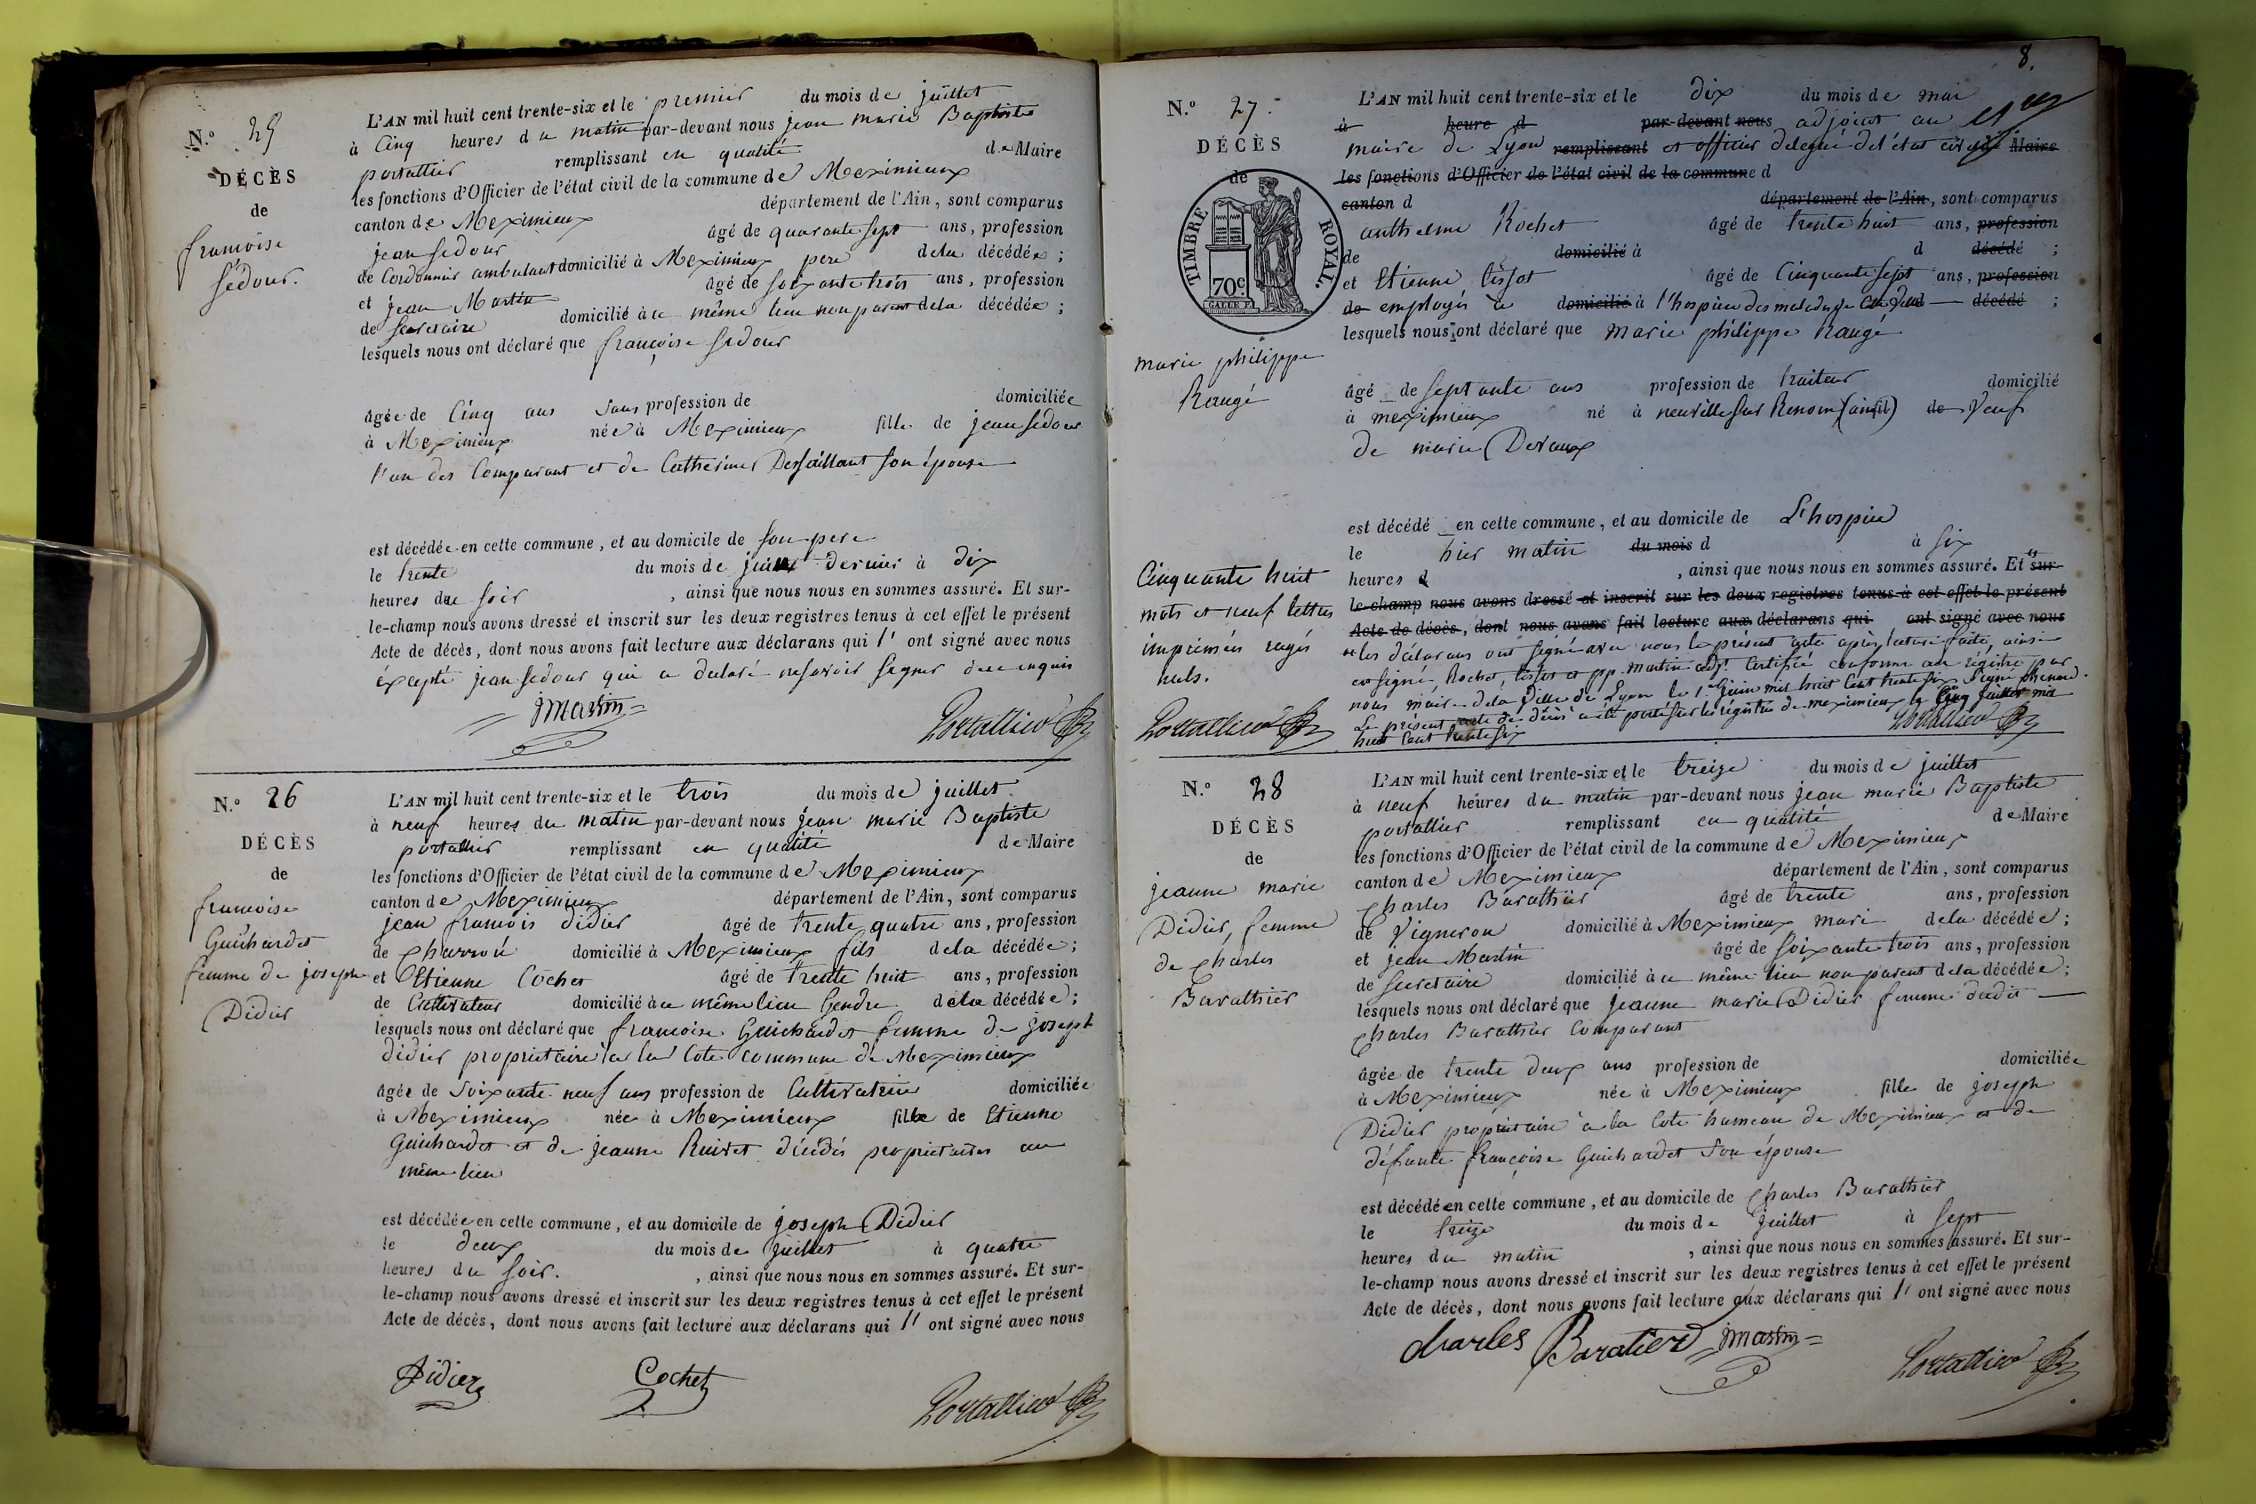 N.º 25
DÉCÈS
de
françoise
Sedour.
L'AN mil huit cent trente-six et le premier du mois de juillet
à Cinq heures du matin par-devant nous jean marie Baptiste
portallier remplissant en qualité de Maire
les fonctions d'Officier de l'état civil de la commune de Meximieux
canton de Meximieux département de l'Ain, sont comparus
jean Sedour âgé de quarante sept ans, profession
de Cordonnier ambulant domicilié à Meximieux pere de la décédée;
et jean Martin âgé de soixante trois ans, profession
de Secretaire domicilié à ce même lieu non parent de la décédée;
lesquels nous ont déclaré que françoise Sedour
âgée de Cinq ans Sans profession de domiciliée
à Meximieux née à Meximieux fille de jean Sedour
l'un des Comparant et de Catherine Dessaillant son épouse
est décédée en cette commune, et au domicile de son pere
le trente du mois de juin dernier à dix
heures du soir, ainsi que nous nous en sommes assuré. Et sur-
le-champ nous avons dressé et inscrit sur les deux registres tenus à cet effet le présent
Acte de décès, dont nous avons fait lecture aux déclarans qui l' ont signé avec nous
éxcepté jean Sedour qui a declaré ne savoir signer de ce enquis
JMartin
Portallier
N.º 26
DÉCÈS
de
francoise
Guichardet
femme de joseph
Didier
L'AN mil huit cent trente-six et le trois du mois de juillet
à neuf heures du matin par-devant nous jean marie Baptiste
portallier remplissant en qualité de Maire
les fonctions d'Officier de l'état civil de la commune de Meximieux
canton de Meximieux département de l'Ain, sont comparus
jean francois didier âgé de trente quatre ans, profession
de charron domicilié à Meximieux fils de la décédée;
et Etienne Cochet âgé de trente huit ans, profession
de Cultivateur domicilié à ce même lieu Gendre de la décédée;
lesquels nous ont déclaré que francoise Guichardet femme de joseph
didier proprietaire à la Cote commune de Meximieux
âgée de Soixante neuf ans profession de Cultivatrice domiciliée
à Meximieux née à Meximieux fille de Etienne
Guichardet et de jeanne Ruivet décédés proprietaires au
même lieu
est décédée en cette commune, et au domicile de joseph Didier
le deux du mois de juillet à quatre
heures du soir., ainsi que nous nous en sommes assuré. Et sur-
le-champ nous avons dressé et inscrit sur les deux registres tenus à cet effet le présent
Acte de décès, dont nous avons fait lecture aux déclarans qui l' ont signé avec nous
Didier Cochet
Portallier
8.
N.º 27.
DÉCÈS
de
TIMBRE ROYAL.
70c
marie philippe
Raugé
Cinquante huit
mots et neuf lettres
imprimés rayés
nuls.
Portallier
L'AN mil huit cent trente-six et le dix du mois de mai
à heure d par-devant nous adjoint au
maire de Lyon remplissant et officier delegué de l'état civil Maire
les fonctions d'Officier de l'état civil de la commune d
canton d département de l'Ain, sont comparus
anthelme Rochet âgé de trente huit ans, profession
de domicilié à d décédé;
et Etienne tissot âgé de Cinquante sept ans, profession
de employés à domicilié à l'hospice des malades décédé;
lesquels nous ont déclaré que marie philippe Raugé
âgé de septante ans profession de traiteur domicilié
à meximieux né à neuville sur Renom (ain) de Veuf
de marie Devaux
est décédé en cette commune, et au domicile de L'hospice
le hier matin du mois d à six
heures d, ainsi que nous nous en sommes assuré. Et sur-
le-champ nous avons dressé et inscrit sur les deux registres tenus à cet effet le présent
Acte de décès, dont nous avons fait lecture aux déclarans qui ont signé avec nous
les déclarans ont signé avec nous le présent acte après lecture faite, ainsi
signé, Rochet, tissot et Martin adjt. Certifié conforme au régistre par
nous maire de la Ville de Lyon le 1er juin mil huit Cent trente six Signé
Le présent acte de décès a été porté sur les régistres de meximieux le Cinq juillet mil
huit Cent trente six
Portallier
N.º 28
DÉCÈS
de
jeanne marie
Didier, femme
de charles
Barathier
L'AN mil huit cent trente-six et le treize du mois de juillet
à neuf heures du matin par-devant nous jean marie Baptiste
portallier remplissant en qualité de Maire
les fonctions d'Officier de l'état civil de la commune de Meximieux
canton de Meximieux département de l'Ain, sont comparus
Charles Barathier âgé de trente ans, profession
de Vigneron domicilié à Meximieux mari de la décédée;
et jean Martin âgé de soixante trois ans, profession
de Secretaire domicilié à ce même lieu non parent de la décédée;
lesquels nous ont déclaré que jeanne marie Didier femme dudit
Charles Barathier Comparant
âgée de trente deux ans profession de domiciliée
à Meximieux née à Meximieux fille de joseph
Didier proprietaire à la Cote hameau de Meximieux et de
défunte françoise Guichardet Son épouse
est décédée en cette commune, et au domicile de Charles Barathier
le treize du mois de juillet à sept
heures du matin, ainsi que nous nous en sommes assuré. Et sur-
le-champ nous avons dressé et inscrit sur les deux registres tenus à cet effet le présent
Acte de décès, dont nous avons fait lecture aux déclarans qui l' ont signé avec nous
charles Baratier JMartin
Portallier